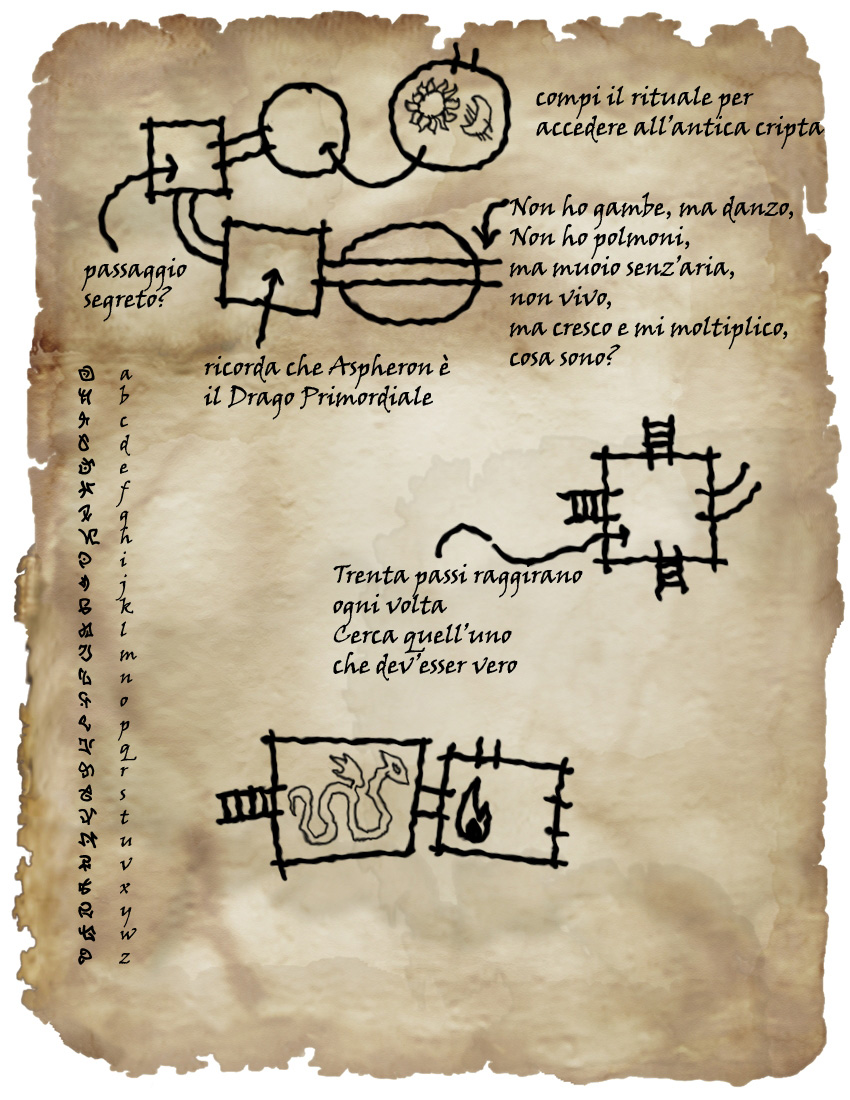 compi il rituale per
accedere all'antica cripta
Non ho gambe, ma danzo,
Non ho polmoni,
ma muoio senz'aria,
non vivo,
ma cresco e mi moltiplico,
cosa sono?
passaggio
segreto?
ricorda che Aspheron è
il Drago Primordiale
a
b
c
d
e
f
g
h
i
j
k
l
m
n
o
p
q
r
s
t
u
v
x
y
w
z
Trenta passi raggirano
ogni volta
Cerca quell'uno
che dev'esser vero